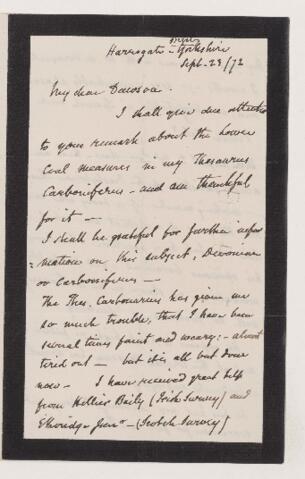 Harrogate - Yorkshire
Sept. 23/72
My dear Dawson.
I shall give due attention
to your remark about the Lower
Coal measures in my Thesaurus
Carboniferus - and am thankful
for it -
I shall be grateful for further infor
mation on this subject, Devonian
or Carboniferous -
The Thes. Carbonarius has given me
so much trouble, that I have been
several times faint and weary: - almost
tired out - but it is all but done
now - I have received great help
from Hellier Baily (Irish Survey) and
Etheridge Junr - (Scotch Survey)